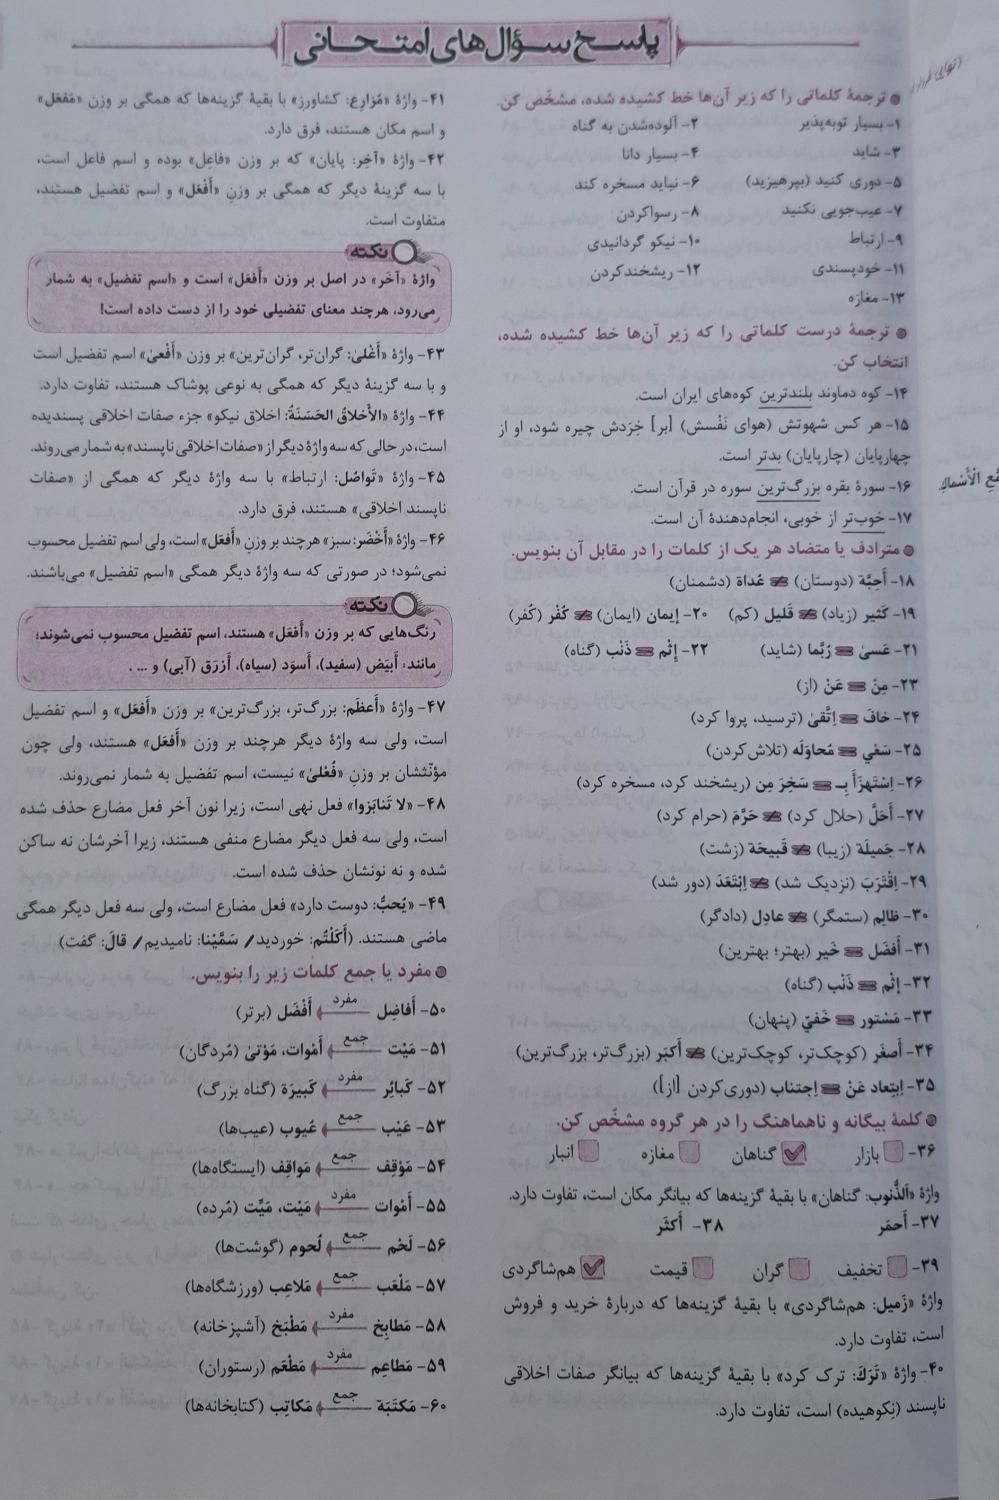 پاسخ سؤال‌های امتحانی
● ترجمهٔ کلماتی را که زیر آن‌ها خط کشیده شده، مشخّص کن.
۱- بسیار توبه‌پذیر ۲- آلوده‌شدن به گناه
۳- شاید ۴- بسیار دانا
۵- دوری کنید (بپرهیزید) ۶- نباید مسخره کند
۷- عیب‌جویی نکنید ۸- رسواکردن
۹- ارتباط ۱۰- نیکو گردانیدی
۱۱- خودپسندی ۱۲- ریشخندکردن
۱۳- مغازه
● ترجمهٔ درست کلماتی را که زیر آن‌ها خط کشیده شده،
انتخاب کن.
۱۴- کوه دماوند بلندترین کوه‌های ایران است.
۱۵- هر کس شهوتش (هوای نَفْسش) [بر] خِرَدش چیره شود، او از
چهارپایان (چارپایان) بدتر است.
۱۶- سورهٔ بقره بزرگ‌ترین سوره در قرآن است.
۱۷- خوب‌تر از خوبی، انجام‌دهندهٔ آن است.
● مترادف یا متضاد هر یک از کلمات را در مقابل آن بنویس.
۱۸- أَحِبَّة (دوستان) ≠ عُداة (دشمنان)
۱۹- کَثیر (زیاد) ≠ قَلیل (کم) ۲۰- إیمان (ایمان) ≠ کُفْر (کُفر)
۲۱- عَسیٰ = رُبَّما (شاید) ۲۲- إثْم = ذَنْب (گناه)
۲۳- مِنْ = عَنْ (از)
۲۴- خافَ = اِتَّقیٰ (ترسید، پروا کرد)
۲۵- سَعْي = مُحاوَلَه (تلاش‌کردن)
۲۶- اِسْتَهزَأَ بِـ = سَخِرَ مِن (ریشخند کرد، مسخره کرد)
۲۷- أَحَلَّ (حلال کرد) ≠ حَرَّمَ (حرام کرد)
۲۸- جَمیلَة (زیبا) ≠ قَبیحَة (زشت)
۲۹- اِقْتَرَبَ (نزدیک شد) ≠ اِبْتَعَدَ (دور شد)
۳۰- ظالِم (ستمگر) ≠ عادِل (دادگر)
۳۱- أَفضَل = خَیر (بهتر؛ بهترین)
۳۲- إثْم = ذَنْب (گناه)
۳۳- مَسْتور = خَفيّ (پنهان)
۳۴- أَصغَر (کوچک‌تر، کوچک‌ترین) ≠ أَکبَر (بزرگ‌تر، بزرگ‌ترین)
۳۵- اِبتِعاد عَنْ = اِجتناب (دوری‌کردن [از])
● کلمهٔ بیگانه و ناهماهنگ را در هر گروه مشخّص کن.
۳۶- بازار گناهان مغازه انبار
واژهٔ «اَلذُّنوب: گناهان» با بقیهٔ گزینه‌ها که بیانگر مکان است، تفاوت دارد.
۳۷- أَحمَر ۳۸- أَکثَر
۳۹- تخفیف گران قیمت هم‌شاگردی
واژهٔ «زَمیل: هم‌شاگردی» با بقیهٔ گزینه‌ها که دربارهٔ خرید و فروش
است، تفاوت دارد.
۴۰- واژهٔ «تَرَكَ: ترک کرد» با بقیهٔ گزینه‌ها که بیانگر صفات اخلاقی
ناپسند (نِکوهیده) است، تفاوت دارد.
۴۱- واژهٔ «مُزارِع: کشاورز» با بقیهٔ گزینه‌ها که همگی بر وزن «مَفعَل»
و اسم مکان هستند، فرق دارد.
۴۲- واژهٔ «آخِر: پایان» که بر وزن «فاعِل» بوده و اسم فاعل است،
با سه گزینهٔ دیگر که همگی بر وزنِ «أَفْعَل» و اسم تفضیل هستند،
متفاوت است.
نکته
واژهٔ «آخَر» در اصل بر وزن «أَفعَل» است و «اسم تفضیل» به شمار
می‌رود، هرچند معنای تفضیلی خود را از دست داده است!
۴۳- واژهٔ «أَغْلیٰ: گران‌تر، گران‌ترین» بر وزن «أَفْعیٰ» اسم تفضیل است
و با سه گزینهٔ دیگر که همگی به نوعی پوشاک هستند، تفاوت دارد.
۴۴- واژهٔ «الأَخلاقُ الحَسَنَةُ: اخلاق نیکو» جزء صفات اخلاقی پسندیده
است، در حالی که سه واژهٔ دیگر از «صفات اخلاقی ناپسند» به شمار می‌روند.
۴۵- واژهٔ «تَواصُل: ارتباط» با سه واژهٔ دیگر که همگی از «صفات
ناپسند اخلاقی» هستند، فرق دارد.
۴۶- واژهٔ «أَخْضَر: سبز» هرچند بر وزنِ «أَفعَل» است، ولی اسم تفضیل محسوب
نمی‌شود؛ در صورتی که سه واژهٔ دیگر همگی «اسم تفضیل» می‌باشند.
نکته
رنگ‌هایی که بر وزن «أَفعَل» هستند، اسم تفضیل محسوب نمی‌شوند؛
مانند: أَبیَض (سفید)، أَسوَد (سیاه)، أَزرَق (آبی) و ... .
۴۷- واژهٔ «أَعظَم: بزرگ‌تر، بزرگ‌ترین» بر وزن «أَفعَل» و اسم تفضیل
است، ولی سه واژهٔ دیگر هرچند بر وزن «أَفعَل» هستند، ولی چون
مؤنّثشان بر وزنِ «فُعْلیٰ» نیست، اسم تفضیل به شمار نمی‌روند.
۴۸- «لا تَنابَزوا» فعل نهی است، زیرا نون آخر فعل مضارع حذف شده
است، ولی سه فعل دیگر مضارع منفی هستند، زیرا آخرشان نه ساکن
شده و نه نونشان حذف شده است.
۴۹- «یُحبُّ: دوست دارد» فعل مضارع است، ولی سه فعل دیگر همگی
ماضی هستند. (أَکَلْتُم: خوردید/ سَمَّیْنا: نامیدیم/ قالَ: گفت)
● مفرد یا جمع کلمات زیر را بنویس.
۵۰- أَفاضِل مفرد أَفْضَل (برتر)
۵۱- مَیْت جمع أَمْوات، مَوْتیٰ (مُردگان)
۵۲- کَبائِر مفرد کَبیرَة (گناه بزرگ)
۵۳- عَیْب جمع عُیوب (عیب‌ها)
۵۴- مَوْقِف جمع مَواقِف (ایستگاه‌ها)
۵۵- أَمْوات مفرد مَیْت، مَیِّت (مُرده)
۵۶- لَحْم جمع لُحوم (گوشت‌ها)
۵۷- مَلْعَب جمع مَلاعِب (ورزشگاه‌ها)
۵۸- مَطابِخ مفرد مَطْبَخ (آشپزخانه)
۵۹- مَطاعِم مفرد مَطْعَم (رستوران)
۶۰- مَکتَبَة جمع مَکاتِب (کتابخانه‌ها)